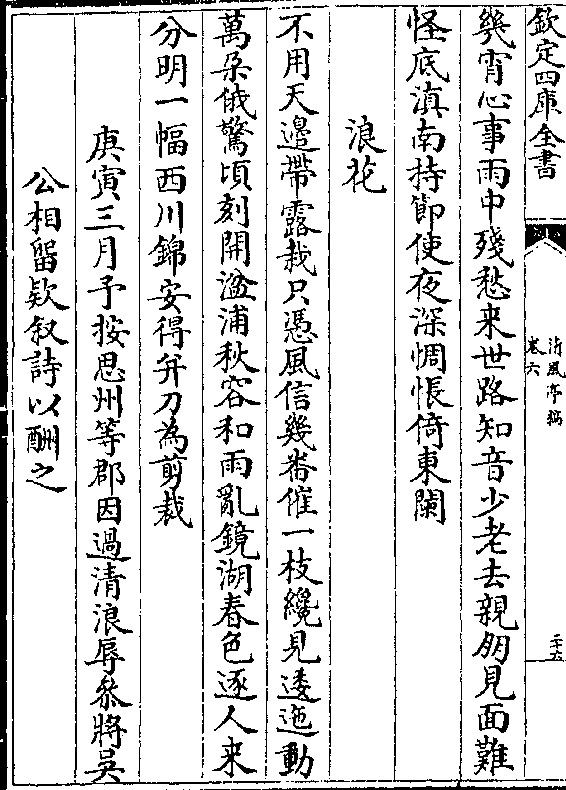 欽定四庫全書
清風亭稿
卷六
二十六
幾宵心事雨中殘愁来世路知音少老去親朋見面難
怪底滇南持節使夜深惆悵倚東闌
浪花
不用天邉帶露栽只憑風信幾畨催一枝纔見逶迤動
萬朶俄驚頃刻開湓浦秋容和雨亂鏡湖春色逐人来
分明一幅西川錦安得并刀為剪裁
庚寅三月予按思州等郡因過清浪辱叅將吳
公相留欵叙詩以酬之